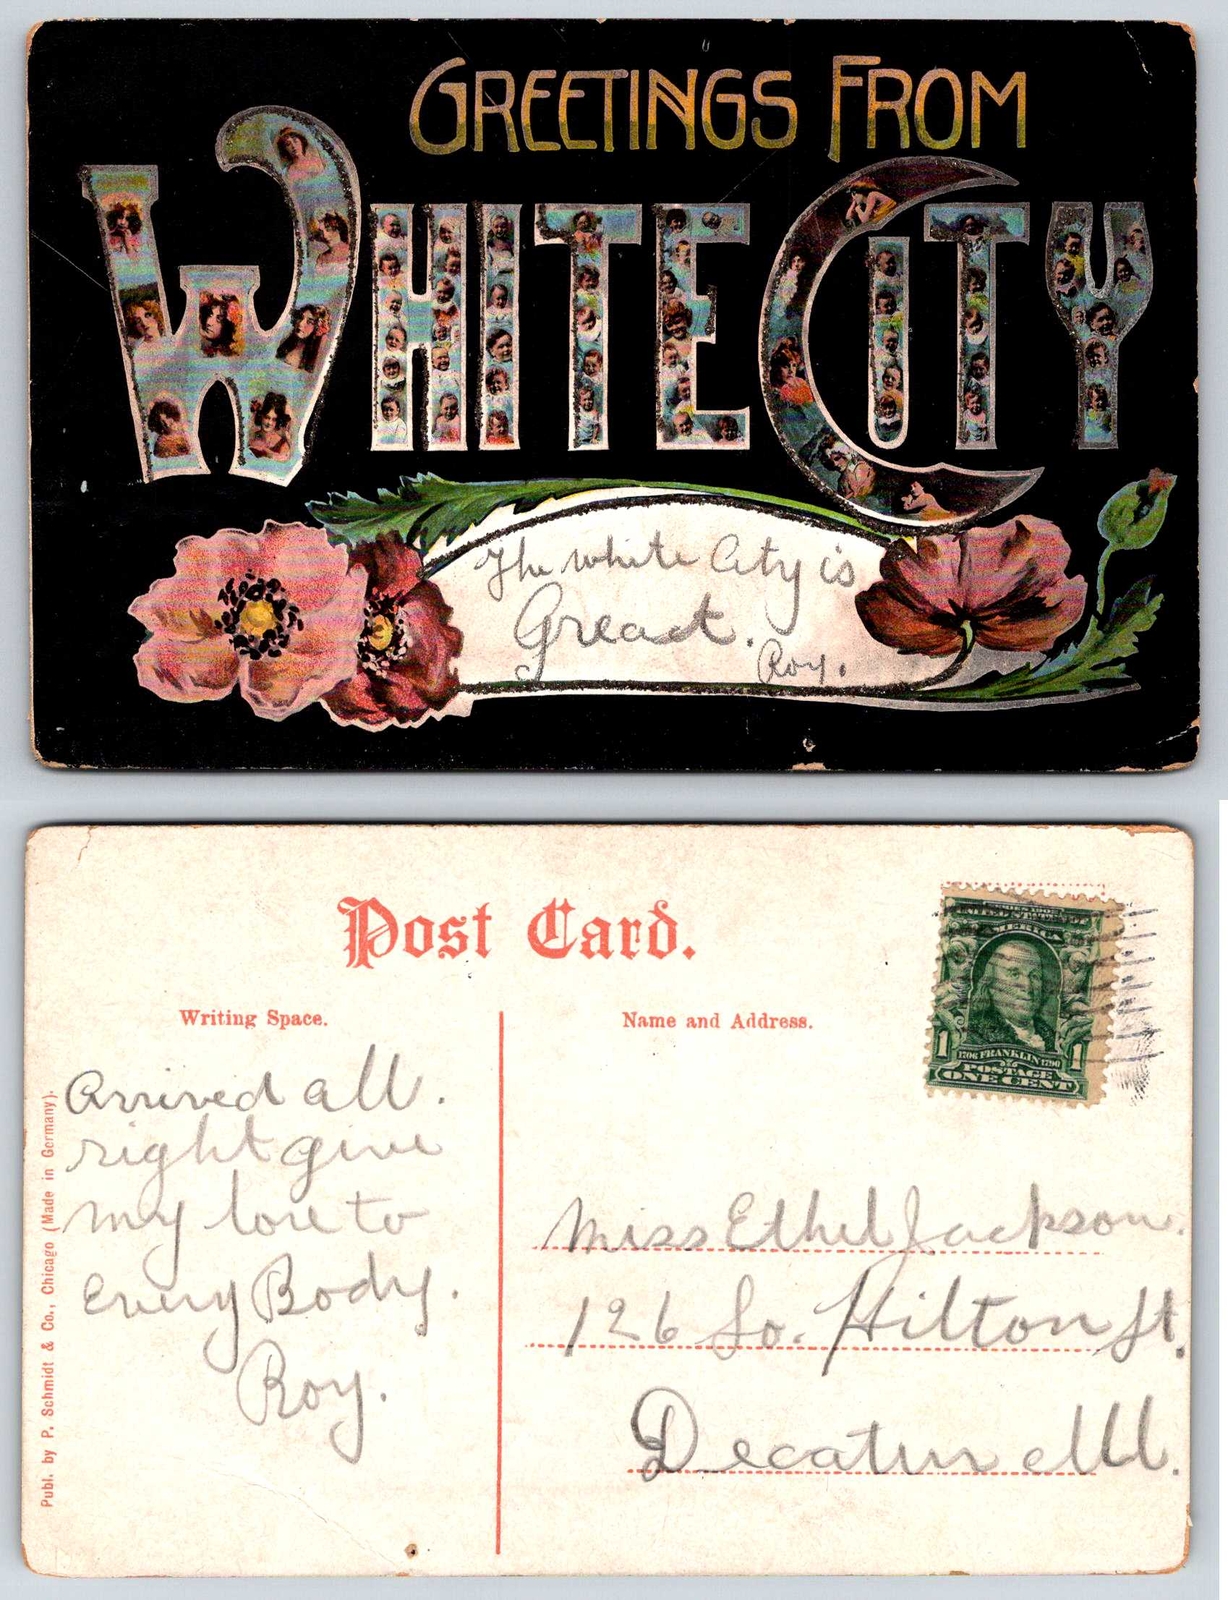 GREETINGS FROM
WHITE CITY
The white City is
Greact.
Roy.
Post Card.
Writing Space.
Name and Address.
UNITED STATES OF
AMERICA
1 1706 FRANKLIN 1790 1
POSTAGE
ONE CENT
Arrived all.
right give
my love to
Every Body.
Roy.
Miss Ethel Jackson.
126 So. Hilton St.
Decatur Ill.
Publ. by P. Schmidt & Co., Chicago (Made in Germany).